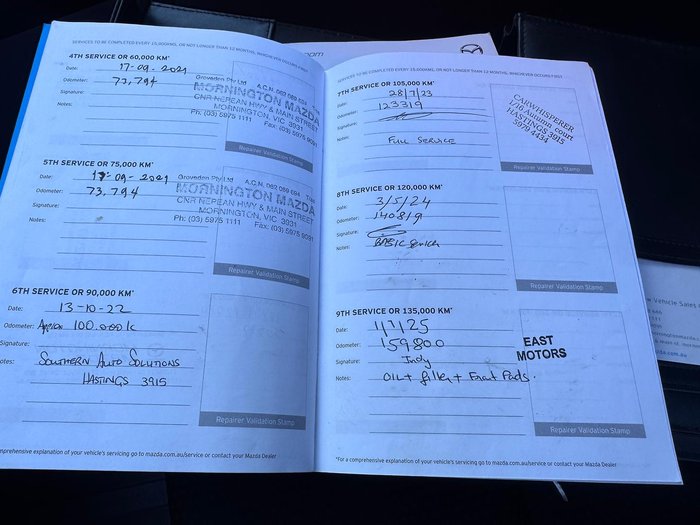 SERVICES TO BE COMPLETED EVERY 15,000KMS, OR NOT LONGER THAN 12 MONTHS, WHICHEVER OCCURS FIRST
4TH SERVICE OR 60,000 KM*
Date: 17-09-2021
Odometer: 73,794
Signature:
Notes:
Groveden Pty Ltd A.C.N. 062 069 694
MORNINGTON MAZDA
CNR NEPEAN HWY & MAIN STREET
MORNINGTON, VIC 3931
Ph: (03) 5975 1111 Fax: (03) 5975 9031
Repairer Validation Stamp
5TH SERVICE OR 75,000 KM*
Date: 17-09-2021
Odometer: 73,794
Signature:
Notes:
Groveden Pty Ltd A.C.N. 062 069 694
MORNINGTON MAZDA
CNR NEPEAN HWY & MAIN STREET
MORNINGTON, VIC 3931
Ph: (03) 5975 1111 Fax: (03) 5975 9031
Repairer Validation Stamp
6TH SERVICE OR 90,000 KM*
Date: 13-10-22
Odometer: 100.000k
Signature:
otes: SOUTHERN AUTO SOLUTIONS
HASTINGS 3915
Repairer Validation Stamp
omprehensive explanation of your vehicle's servicing go to mazda.com.au/service or contact your Mazda Dealer
SERVICES TO BE COMPLETED EVERY 15,000KMS, OR NOT LONGER THAN 12 MONTHS, WHICHEVER OCCURS FIRST
7TH SERVICE OR 105,000 KM*
Date: 28/7/23
Odometer: 123319
Signature:
Notes: FULL SERVICE
CARWHISPERER
1/16 Autumn court
HASTINGS 3915
5979 4434
Repairer Validation Stamp
8TH SERVICE OR 120,000 KM*
Date: 3/5/24
Odometer: 140819
Signature:
Notes: BASIC Service
Repairer Validation Stamp
9TH SERVICE OR 135,000 KM*
Date: 1/1/25
Odometer: 159800
Signature: Indy
Notes: OIL + filter + Front Pads.
EAST
MOTORS
Repairer Validation Stamp
*For a comprehensive explanation of your vehicle's servicing go to mazda.com.au/service or contact your Mazda Dealer
.com
Vehicle Sales